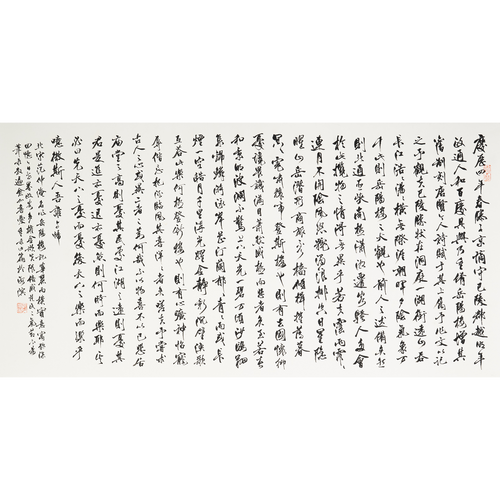 慶歷四年春滕子京謫守巴陵郡越明年
政通人和百廢具興乃重修岳陽樓增其
舊制刻唐賢今人詩賦于其上屬予作文以記
之予觀夫巴陵勝狀在洞庭一湖銜遠山吞
長江浩浩湯湯橫無際涯朝暉夕陰氣象萬
千此則岳陽樓之大觀也前人之述備矣然
則北通巫峽南極瀟湘遷客騷人多會
於此覽物之情得無異乎若夫霪雨霏霏
連月不開陰風怒號濁浪排空日星隱
曜山岳潛形商旅不行檣傾楫摧薄暮
冥冥虎嘯猿啼登斯樓也則有去國懷鄉
憂讒畏譏滿目蕭然感極而悲者矣至若春
和景明波瀾不驚上下天光一碧萬頃沙鷗翔
集錦鱗游泳岸芷汀蘭郁郁青青而或長
煙一空皓月千里浮光躍金靜影沉璧漁歌
互答此樂何極登斯樓也則有心曠神怡寵
辱偕忘把酒臨風其喜洋洋者矣嗟夫予嘗求
古人仁心或異二者之為何哉不以物喜不以己悲居
廟堂之高則憂其民處江湖之遠則憂其
君是進亦憂退亦憂然則何時而樂耶其
必曰先天下之憂而憂後天下之樂而樂乎
噫微斯人吾誰與歸
北宋范仲淹名作岳陽樓記